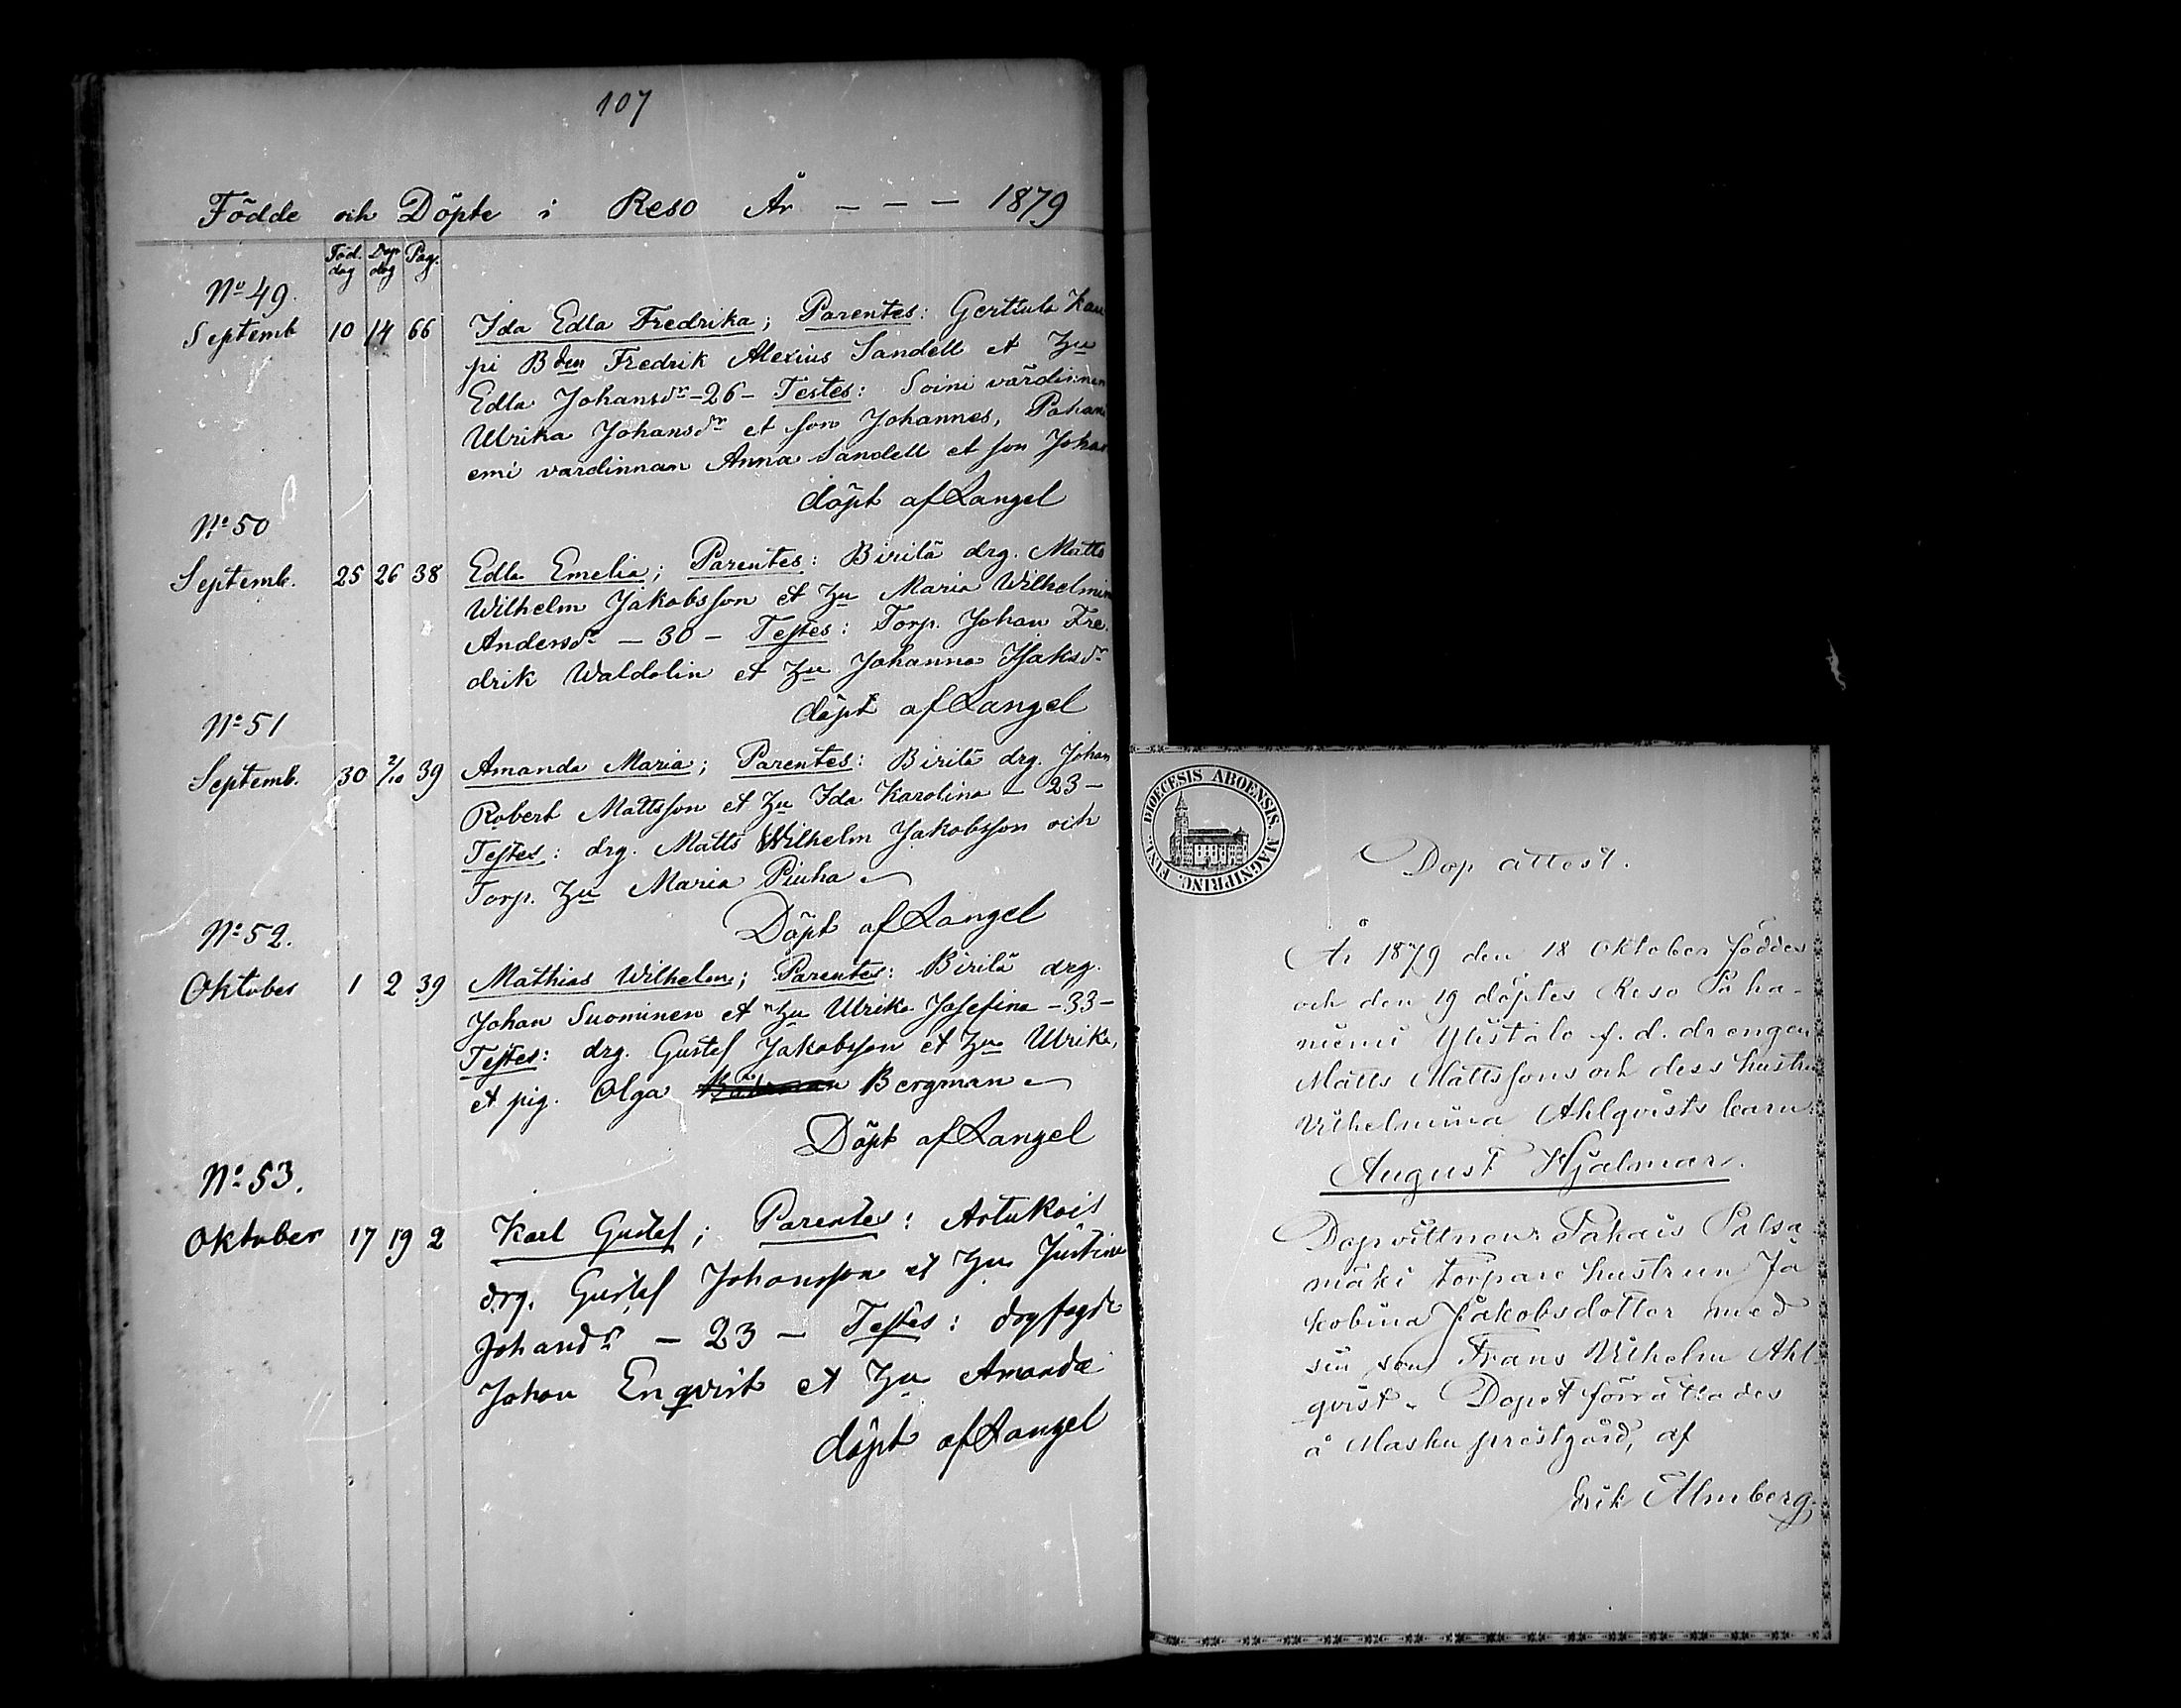 107
Födde och Döpte i Reso År - - - 1879
Föd. dag Dop dag Pag.
No 49.
Septemb 10 14 66 Ida Edla Fredrika; Parentes: Gerttula Kau
pi Bden Fredrik Alexius Sandell et hu
Edla Johansdr - 26 - Testes: Soini värdinnan
Ulrika Johansdr et son Johannes, Pahani
emi vardinnan Anna Sandell et son Johan
döpt af Langel
No 50
Septemb. 25 26 38 Edla Emelia; Parentes: Birilä drg. Matts
Wilhelm Jakobsson et hu Maria Wilhelmin
Andersdr - 30 - Testes: Torp. Johan Fre-
drik Waldolin et hu Johanna Isaksdr
döpt af Langel
No 51
Septemb. 30 2/10 39 Amanda Maria; Parentes: Birilä drg. Johan
Robert Mattsson et hu Ida Karolina - 23 -
Testes: drg. Matts Wilhelm Jakobsson och
Torp. hu Maria Piuha
Döpt af Langel
No 52.
Oktober 1 2 39 Mathias Wilhelm; Parentes: Birilä drg.
Johan Suominen et hu Ulrika Josefina - 33 -
Testes: drg. Gustaf Jakobsson et hu Ulrika,
et pig. Olga Bergman
Döpt af Langel
No 53.
Oktober 17 19 2 Karl Gustaf; Parentes: Artukais
drg. Gustaf Johansson et hu Justina
Johandr - 23 - Testes: drgfogde
Johan Enqvist et hu Amanda
döpt af Langel
DIOECESIS ABOENSIS. MAGNI PRINC. FINL.
Dop attest.
År 1879 den 18 Oktober föddes
och den 19 döptes Reso Paha-
niemi Ylistalo f. d. drengen
Matts Mattssons och dess hustru
Vilhelmina Ahlqvists barn:
August Hjalmar.
Dopvittnen: Pahais Palsa
mäki torpare hustrun Ja
kobina Jakobsdotter med
sin son Frans Vilhelm Ahl
qvist. Dopet förrättades
å Masku prestgård, af
Erik Almberg.